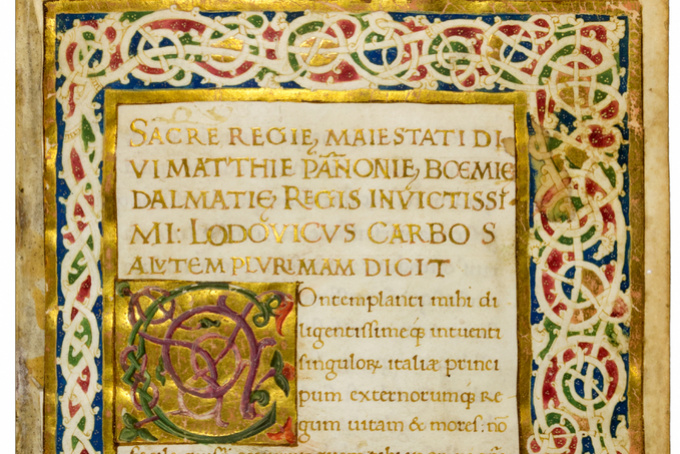 SACRE REGIĘ MAIESTATI DI
VI MATTHIE PAÑONIĘ BOEMIE
DALMATIĘ REGIS INVICTISSI
MI: LODOVICVS CARBO S
ALVTEM PLVRIMAM DICIT
Contemplanti mihi di
ligentissimeq; intuenti
singulorꝝ italiæ princi
pum externorumq; Re
gum uitam & mores: nō